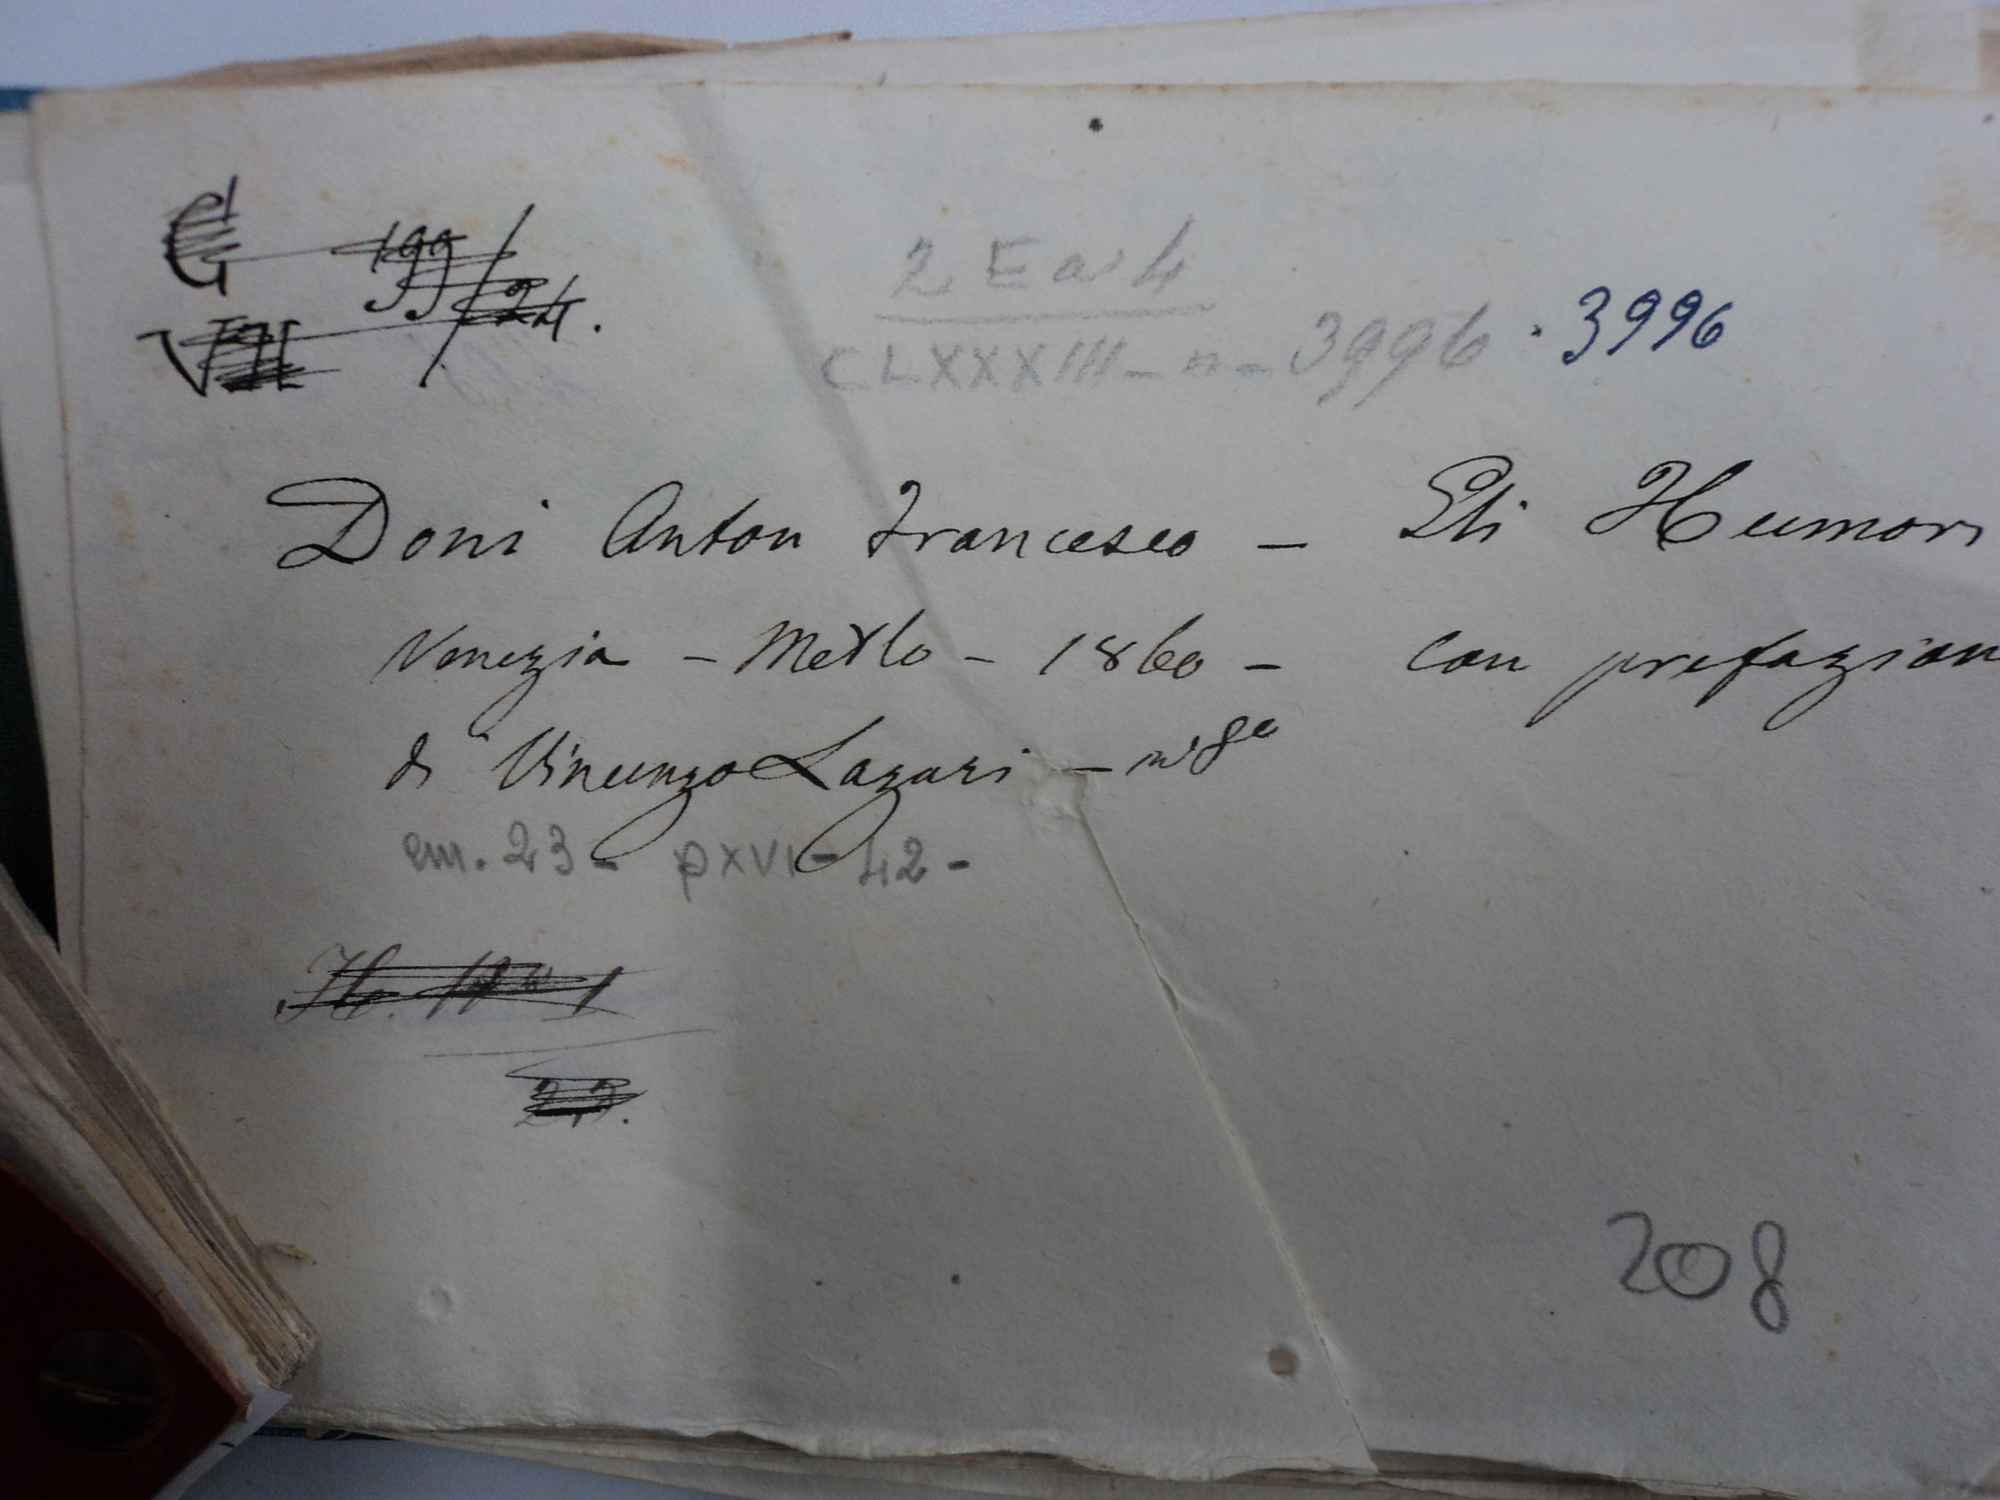 G 199/24.
VII
2 E a 4
CLXXXIII - n - 3996 · 3996
Doni Anton Francesco - Gli Humori
Venezia - Merlo - 1860 - Con prefazion
di Vincenzo Lazari - in 8°
cm. 23 - pXVI - 42 -
208